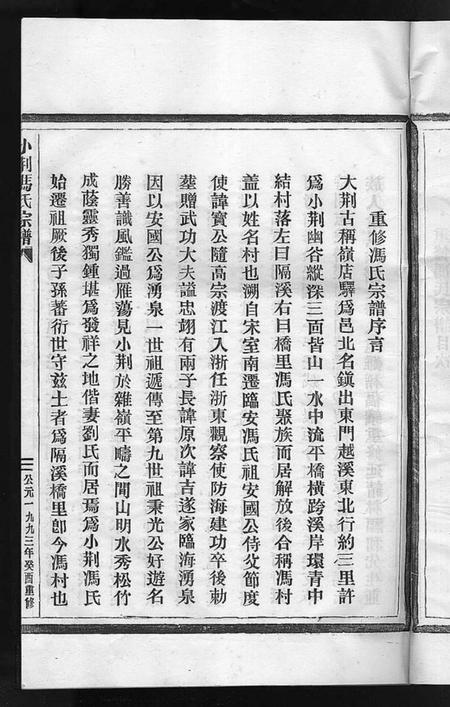 重修馮氏宗譜序言
大荆古稱嶺店驛爲邑北名鎭出東門越溪東北行約三里許
爲小荆幽谷縱深三面皆山一水中流平橋橫跨溪岸環靑中
結村落左曰隔溪右曰橋里馮氏聚族而居解放後合稱馮村
蓋以姓名村也溯自宋室南遷臨安馮氏祖安國公侍父節度
使諱實公隨高宗渡江入浙任浙東觀察使防海建功卒後勅
塟贈武功大夫謚忠翊有兩子長諱原次諱吉遂家臨海湧泉
因以安國公爲湧泉一世祖遞傳至第九世祖秉光公好遊名
勝善識風鑑過雁蕩見小荆於雜嶺平疇之間山明水秀松竹
成蔭靈秀獨鍾堪爲發祥之地偕妻劉氏而居焉爲小荆馮氏
始遷祖厥後子孫蕃衍世守兹土者爲隔溪橋里卽今馮村也
小荆馮氏宗譜
公元一九九三年癸酉重修